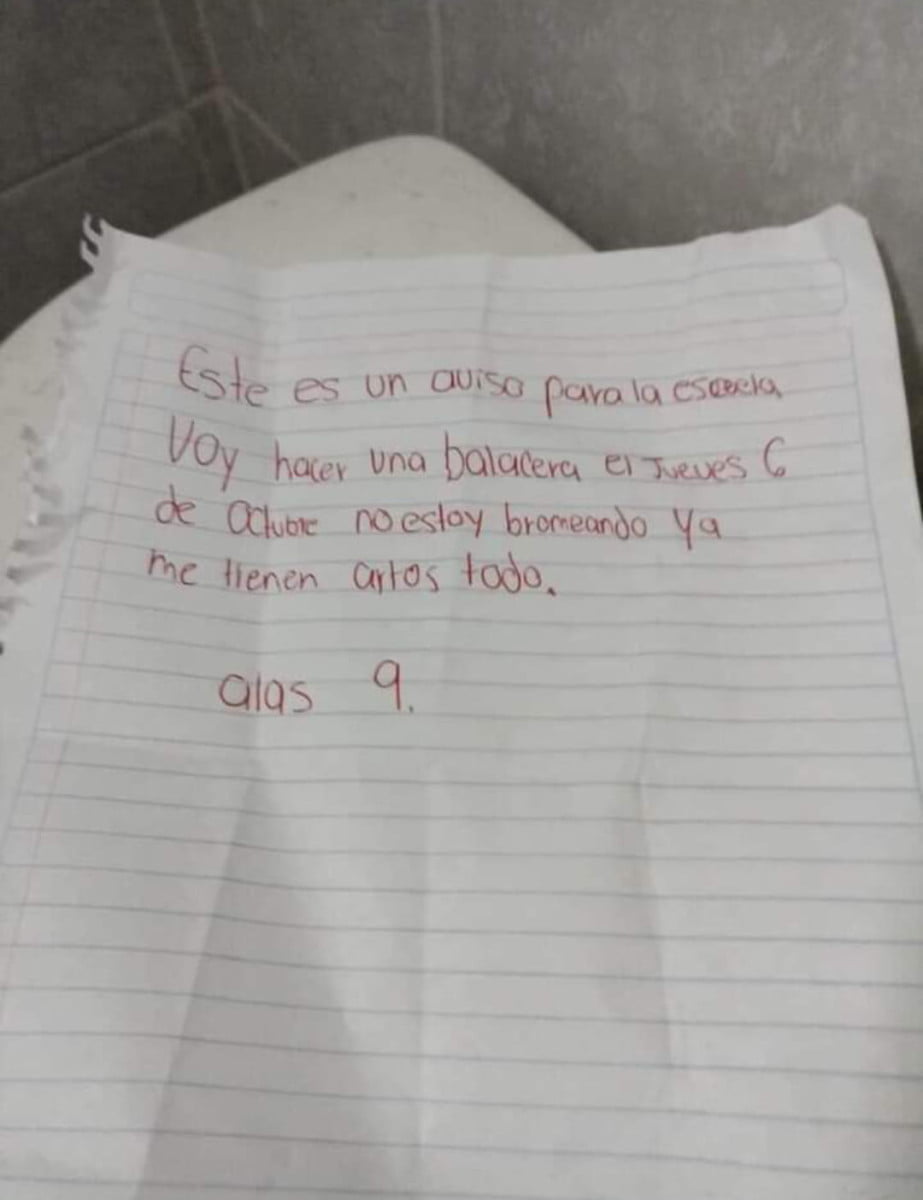 Este es un aviso para la escuela
Voy hacer una balacera el Jueves 6
de Octubre no estoy bromeando Ya
me tienen artos todo.
alas 9.